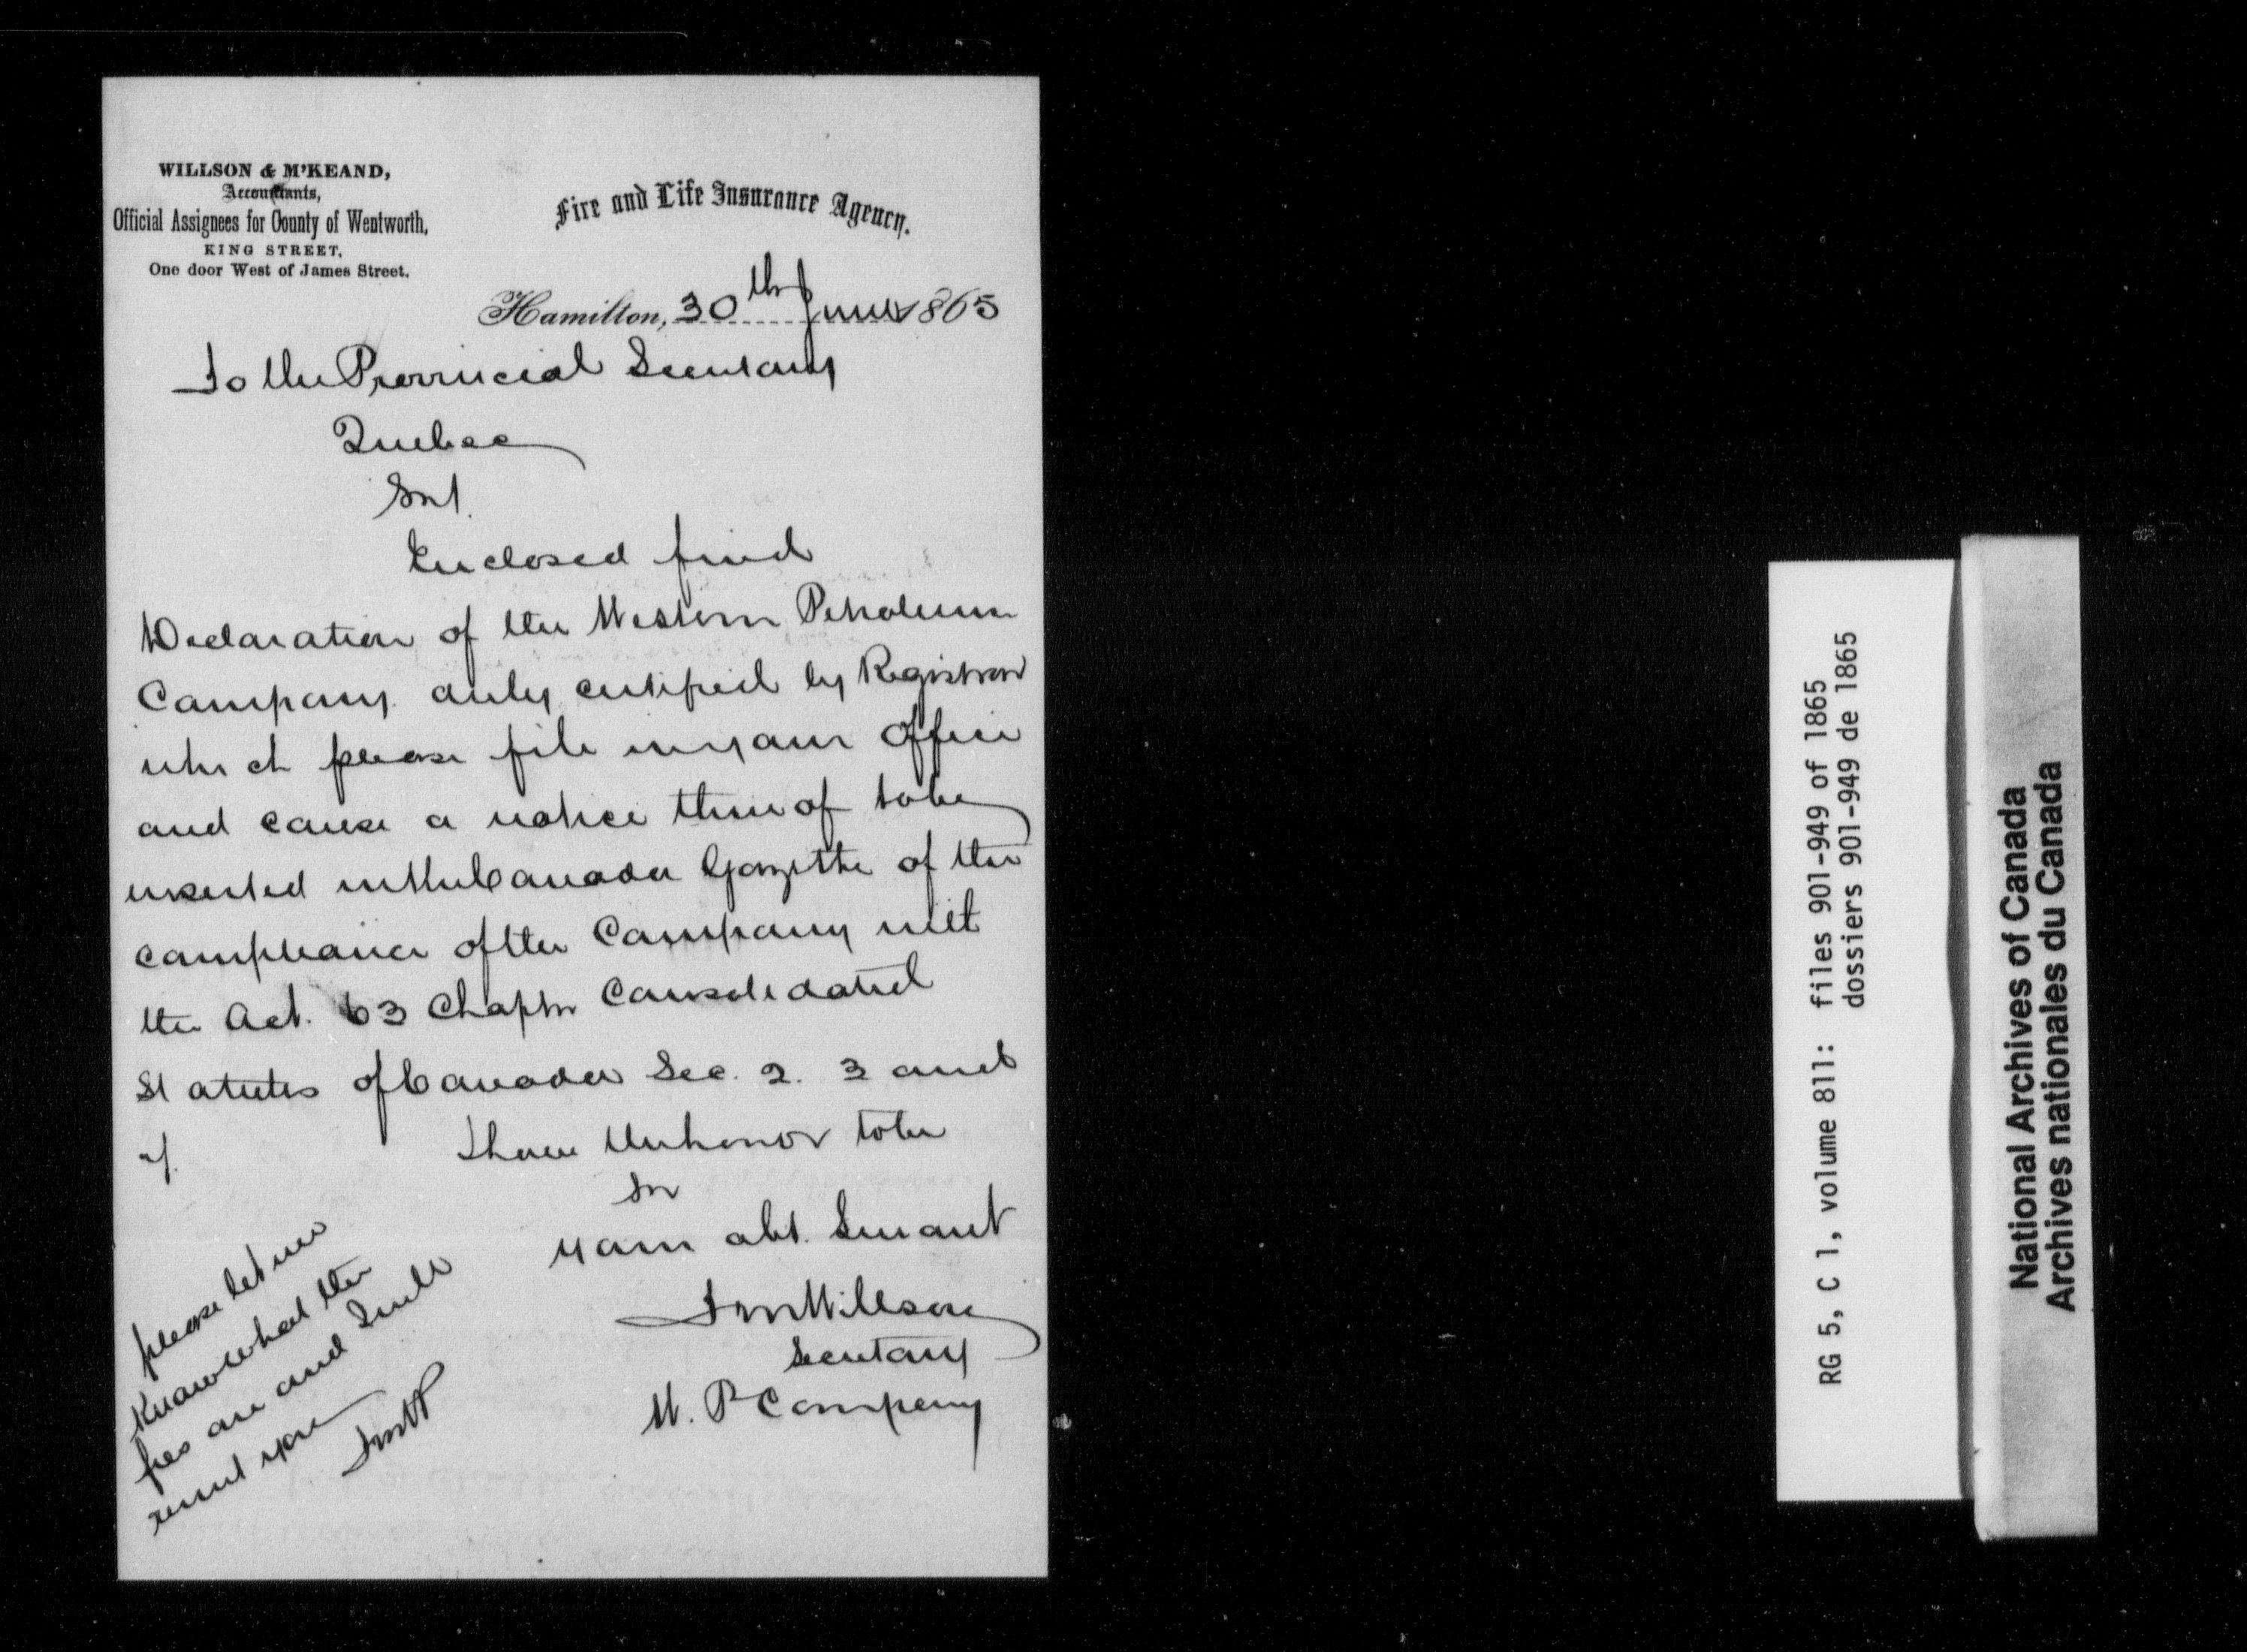 WILLSON & M'KEAND,
Accountants,
Official Assignees for County of Wentworth,
KING STREET,
One door West of James Street.
Fire and Life Insurance Agency.
Hamilton, 30th June 1865
To the Provincial Secretary
Quebec
Sir.
Enclosed find
Declaration of the Western Petroleum
Company duly certified by Registrar
which please file in your office
and cause a notice thereof to be
inserted in the Canada Gazette of the
compliance of the Company with
the Act. 63 Chaptr Consolidated
Statutes of Canada Sec. 2. 3 and
4.
I have the honor to be
Sir
your obt. Servant
Willson
Secretary
W. P Company
please let me
Know what the
fees are and I will
remit you
RG 5, C 1, volume 811: files 901-949 of 1865
dossiers 901-949 de 1865
National Archives of Canada
Archives nationales du Canada